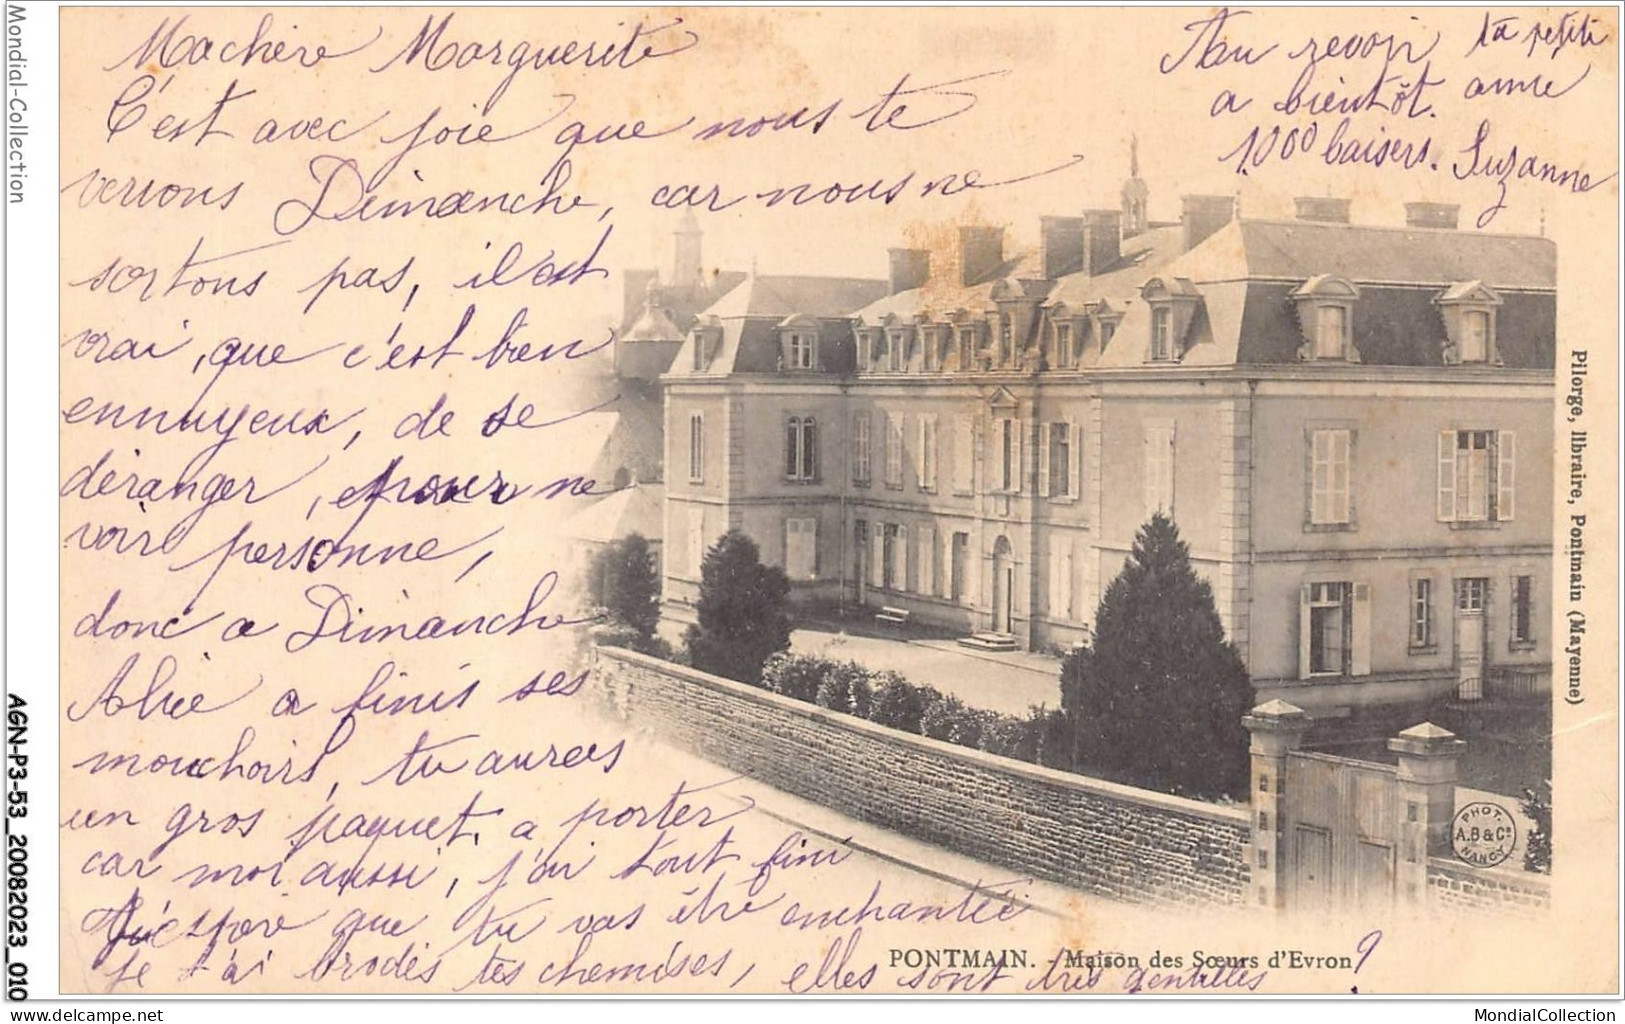 Ma chère Marguerite
C'est avec joie que nous te
verrons Dimanche, car nous ne
sortons pas, il est
vrai, que c'est bien
ennuyeux, de se
déranger, et pour ne
voir personne,
donc a Dimanche
Alice a finis ses
mouchoirs, tu auras
un gros paquet, a porter
car moi aussi, j'ai tout fini
J'éspère que tu vas être enchantée
je t'ai brodés tes chemises, elles sont très gentilles ?
Au revoir
a bientôt.
1.000 baisers.
ta petite
amie
Suzanne
PONTMAIN. - Maison des Sœurs d'Evron
Pilorge, libraire, Pontmain (Mayenne)
PHOT.
A.B & Cie
NANCY
Mondial-Collection
AGN-P3-53_20082023_010
www.mondialcollection.com
MondialCollection